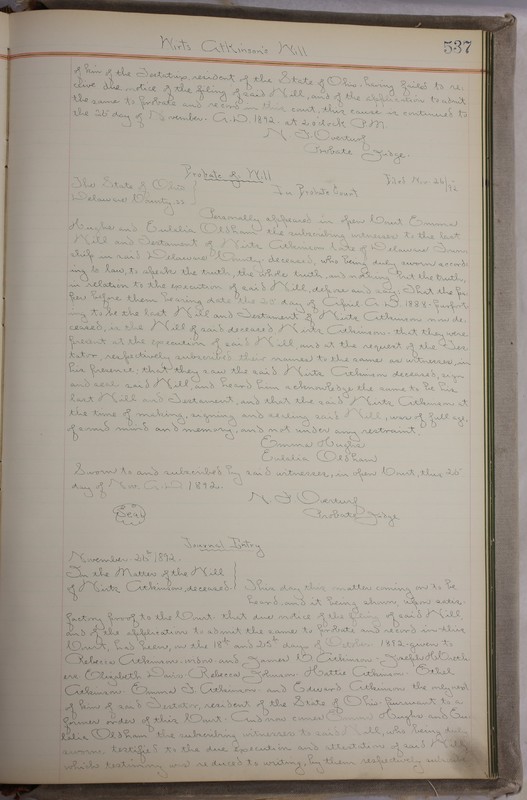 Wirts Atkinson's Will
537
of kin of the Testator, resident of the State of Ohio, having failed to re-
ceive due notice of the filing of said Will, and of the application to admit
the same to probate and record in this court, this cause is continued to
the 26 day of November A.D. 1892. at 2 o'clock P.M.
N. F. Overturf
Probate Judge.
Probate of Will
Filed Nov. 26/92
The State of Ohio
Delaware County, ss
In Probate Court
Personally appeared in open Court Emma
Hughes and Eudelia Oldham, the subscribing witnesses to the last
Will and Testament of Wirts Atkinson late of Delaware Town-
ship in said Delaware County, deceased, who being duly sworn accord-
ing to law, to speak the truth, the whole truth, and nothing but the truth,
in relation to the execution of said Will, depose and say; That the pa-
per before them bearing date the day of April A.D. 1888. purport-
ing to be the last Will and Testament of Wirts Atkinson now de-
ceased, is the Will of said deceased Wirts Atkinson. that they were
present at the execution of said Will, and at the request of the Tes-
tator, respectively subscribed their names to the same as witnesses, in
his presence, that they saw the said Wirts Atkinson deceased, sign
and seal said Will, and heard him acknowledge the same to be his
last Will and Testament, and that the said Wirts Atkinson at
the time of making, signing and sealing said Will, was of full age,
of sound mind and memory, and not under any restraint.
Emma Hughes
Eudelia Oldham
Sworn to and subscribed by said witnesses, in open Court, this 26
day of Nov. A.D. 1892.
N. F. Overturf
Seal
Probate Judge
Journal Entry
November 26th 1892.
In the Matter of the Will
of Wirts Atkinson deceased.
This day this matter coming on to be
heard, and it being shown, upon satis-
factory proof to the Court that due notice of the filing of said Will
and of the application to admit the same to probate and record in this
Court, had been, on the 18th and 25th days of October 1892 given to
Rebecca Atkinson, widow, and James Atkinson. Joseph
Elizabeth Rebecca Johnson Hattie Atkinson. Ethel
Atkinson. Emma J. Atkinson. and Edward Atkinson the next
of kin of said Testator, resident of the State of Ohio. pursuant to a
former order of this Court. And now comes Emma Hughes and Eu-
delia Oldham the subscribing witnesses to said Will, who being duly
sworn testified to the due execution and attestation of said Will,
which testimony was reduced to writing, by them respectively